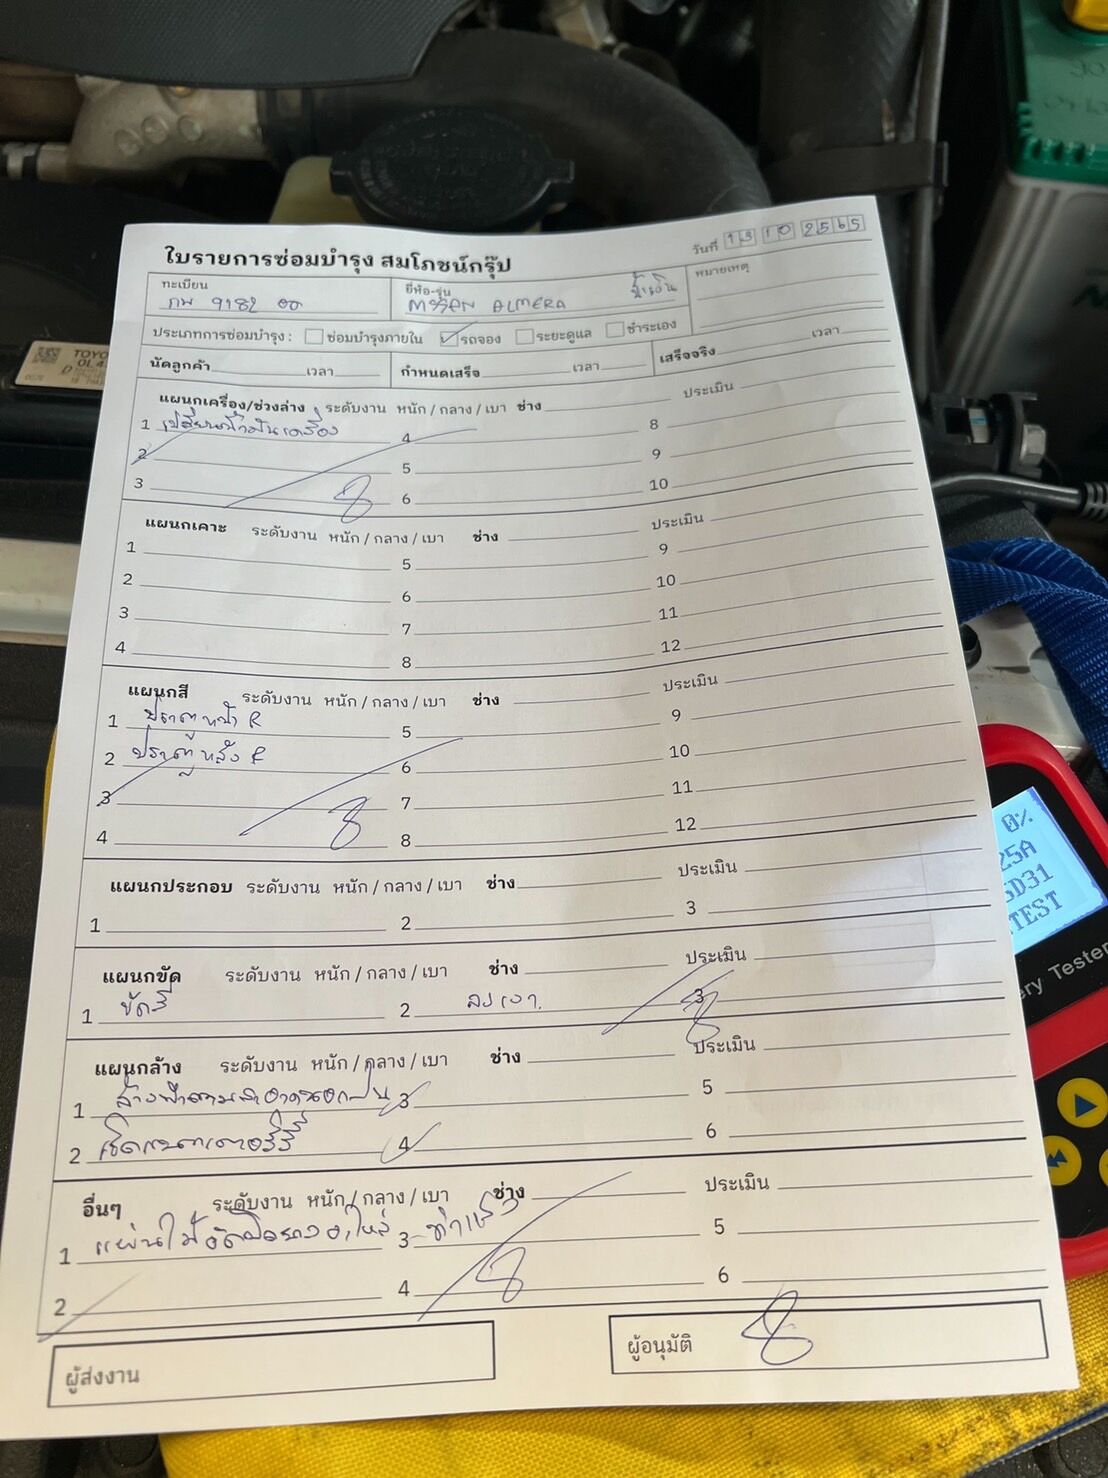 ใบรายการซ่อมบำรุง สมโภชน์กรุ๊ป
วันที่ 13 10 2565
ทะเบียน
กพ 9182
ยี่ห้อ-รุ่น
NISSAN ALMERA
หมายเหตุ
ประเภทการซ่อมบำรุง : ซ่อมบำรุงภายใน รถจอง ระยะดูแล ชำระเอง
นัดลูกค้า เวลา กำหนดเสร็จ เวลา เสร็จจริง เวลา
แผนกเครื่อง/ช่วงล่าง ระดับงาน หนัก / กลาง / เบา ช่าง ประเมิน
1 เปลี่ยนน้ำมันเครื่อง 4 8
2 5 9
3 6 10
แผนกเคาะ ระดับงาน หนัก / กลาง / เบา ช่าง ประเมิน
1 5 9
2 6 10
3 7 11
4 8 12
แผนกสี ระดับงาน หนัก / กลาง / เบา ช่าง ประเมิน
1 ประตูหน้า R 5 9
2 ประตูหลัง R 6 10
3 7 11
4 8 12
แผนกประกอบ ระดับงาน หนัก / กลาง / เบา ช่าง ประเมิน
1 2 3
แผนกขัด ระดับงาน หนัก / กลาง / เบา ช่าง ประเมิน
1 ขัดสี 2 ลบเงา 3
แผนกล้าง ระดับงาน หนัก / กลาง / เบา ช่าง ประเมิน
1 3 5
2 เช็คแบตเตอรี่ 4 6
อื่นๆ ระดับงาน หนัก / กลาง / เบา ช่าง ประเมิน
1 แผ่นไม้อัดปิดยางอะไหล่ 3 5
2 4 6
ผู้ส่งงาน
ผู้อนุมัติ
TOYO
0%
25A
D31
TEST
ery Tester